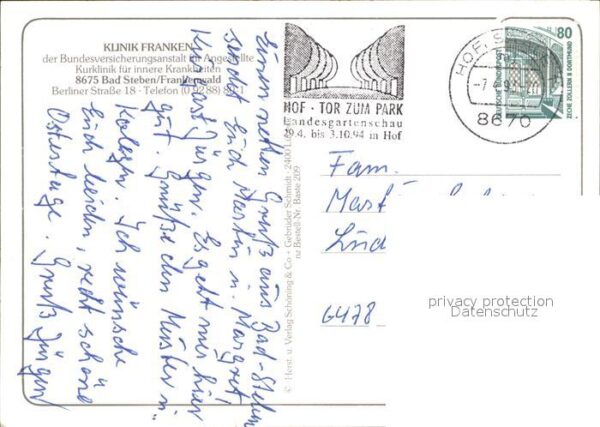 KLINIK FRANKEN
der Bundesversicherungsanstalt für Angestellte
Kurklinik für innere Krankheiten
8675 Bad Steben/Frankenwald
Berliner Straße 18 · Telefon (0 92 88)
Einen netten Gruß aus Bad-Steben
sendet Euch Martin u. Margret,
Jürgen. Es geht mir hier
gut. Grüße den Meister u.
Kollegen. Ich wünsche
Euch beiden, recht schöne
Ostertage. Gruß Jürgen
© Herst. u. Verlag Schöning & Co · Gebrüder Schmidt · 2400
Bestell-Nr. Baste 209
HOF · TOR ZUM PARK
Landesgartenschau
29.4. bis 3.10.94 in Hof
HOF
8670
80
DEUTSCHE BUNDESPOST
ZECHE ZOLLERN II DORTMUND
Fam.
Mart
Lind
6478
privacy protection
Datenschutz